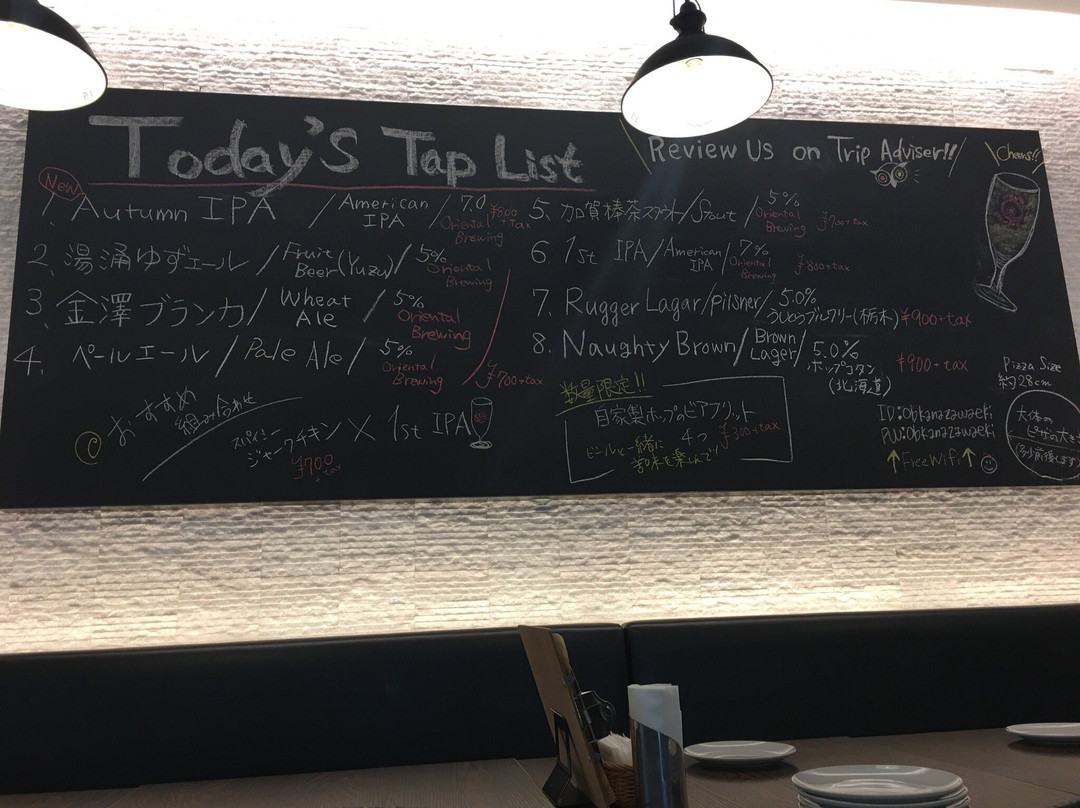 Today's Tap List
New
1. Autumn IPA / American IPA / 7.0 ¥800+tax
Oriental Brewing
2. 湯涌ゆずエール / Fruit Beer (Yuzu) / 5%
Oriental Brewing
3. 金澤ブランカ / Wheat Ale / 5%
Oriental Brewing
4. ペールエール / Pale Ale / 5%
Oriental Brewing
¥700+tax
おすすめ
組み合わせ
スパイシー
ジャークチキン × 1st IPA
¥700
+tax
Review Us on Trip Adviser!!
Cheers!!
5. 加賀棒茶スタウト/Stout / 5%
Oriental Brewing ¥700+tax
6. 1st IPA/American IPA / 7%
Oriental Brewing ¥800+tax
7. Rugger Lagar/pilsner/5.0%
ろまんちっくブルワリー(栃木) ¥900+tax
8. Naughty Brown/Brown Lager/5.0%
ホップコタン
(北海道)
¥900+tax
数量限定!!
自家製ホップのビアフリット
4つ ¥300+tax
ビールと一緒に
苦味を楽しんで
Pizza Size
約28cm
大体の
ピザの大きさ
(多少前後します)
ID:Obkanazawaeki
PW:Obkanazawaeki
↑FreeWifi↑